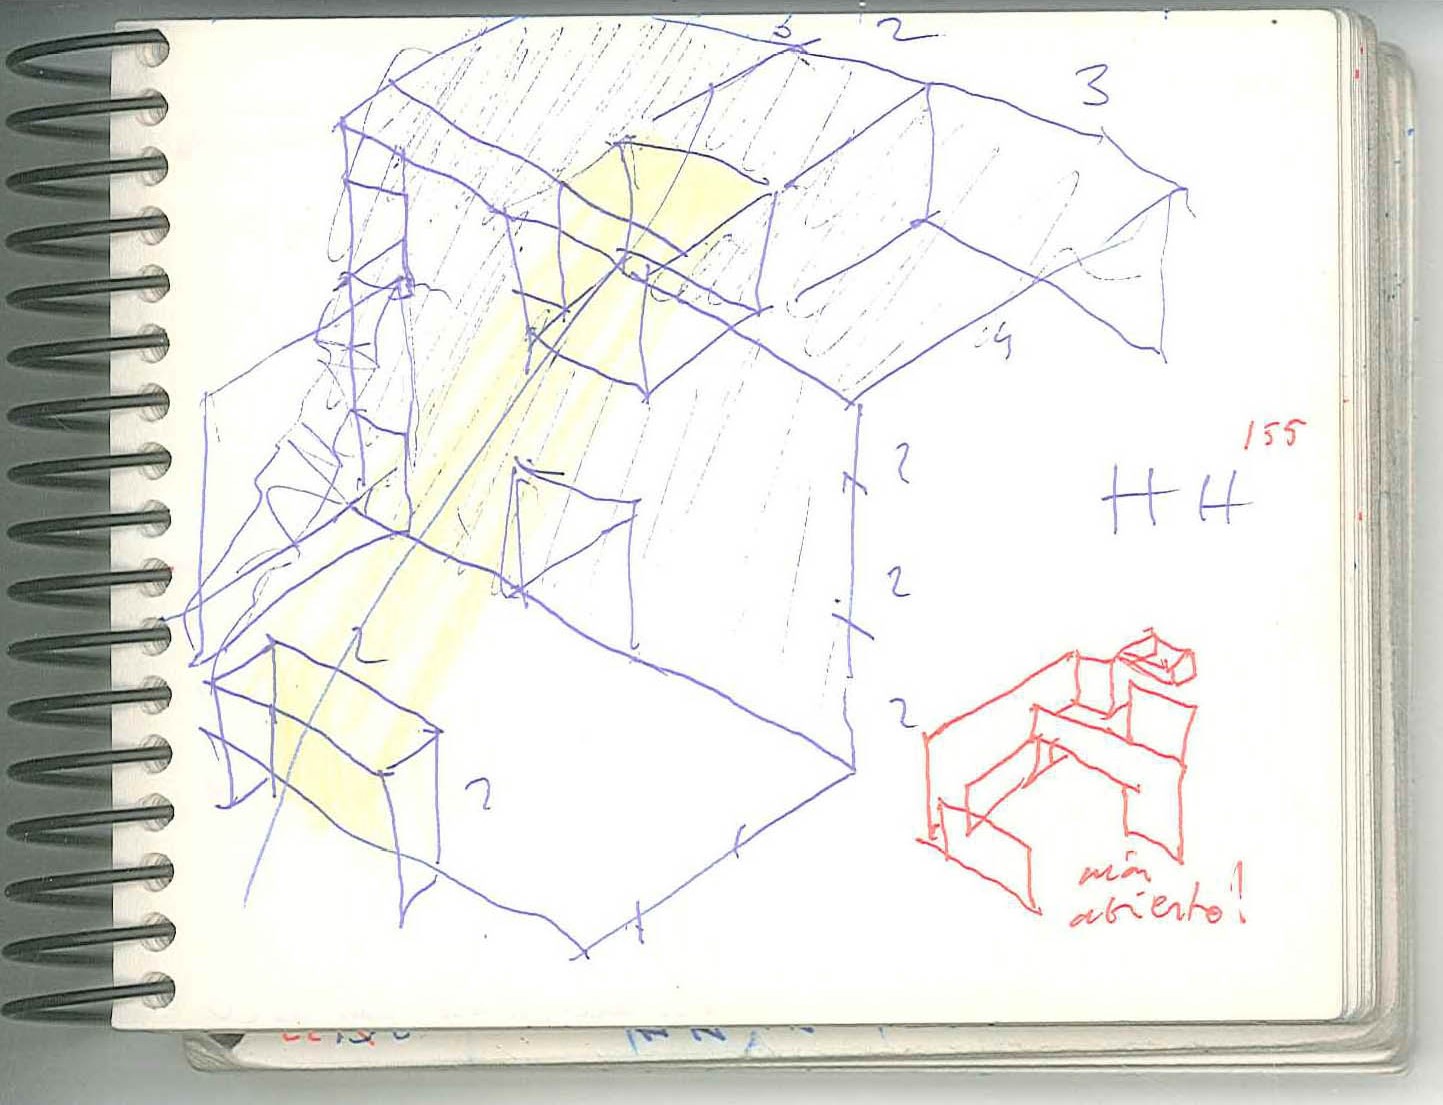 2
3
4
155
2
HH
2
2
2
más
abierto!